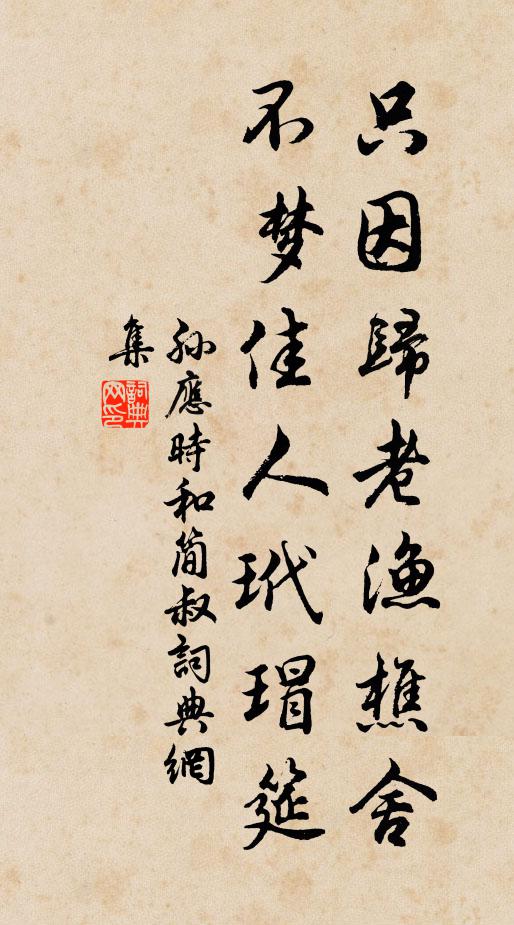 只因歸老漁樵舍
不梦佳人玳瑁筵
孫應時和簡叔詞典網
集
詞典
网印